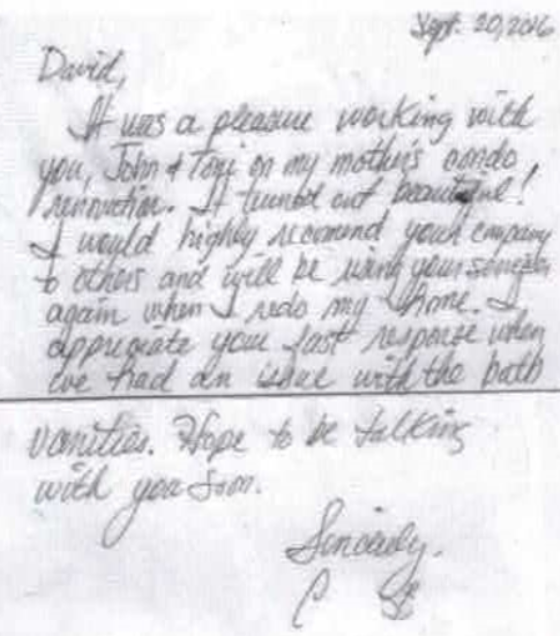 Sept. 20, 2016
David,
It was a pleasure working with
you, John & Toni on my mother's condo
renovation. It turned out beautiful!
I would highly recomend your company
to others and will be using your services
again when I redo my home. I
appreciate your fast response when
we had an issue with the bath
vanities. Hope to be talking
with you soon.
Sincerely,
C S